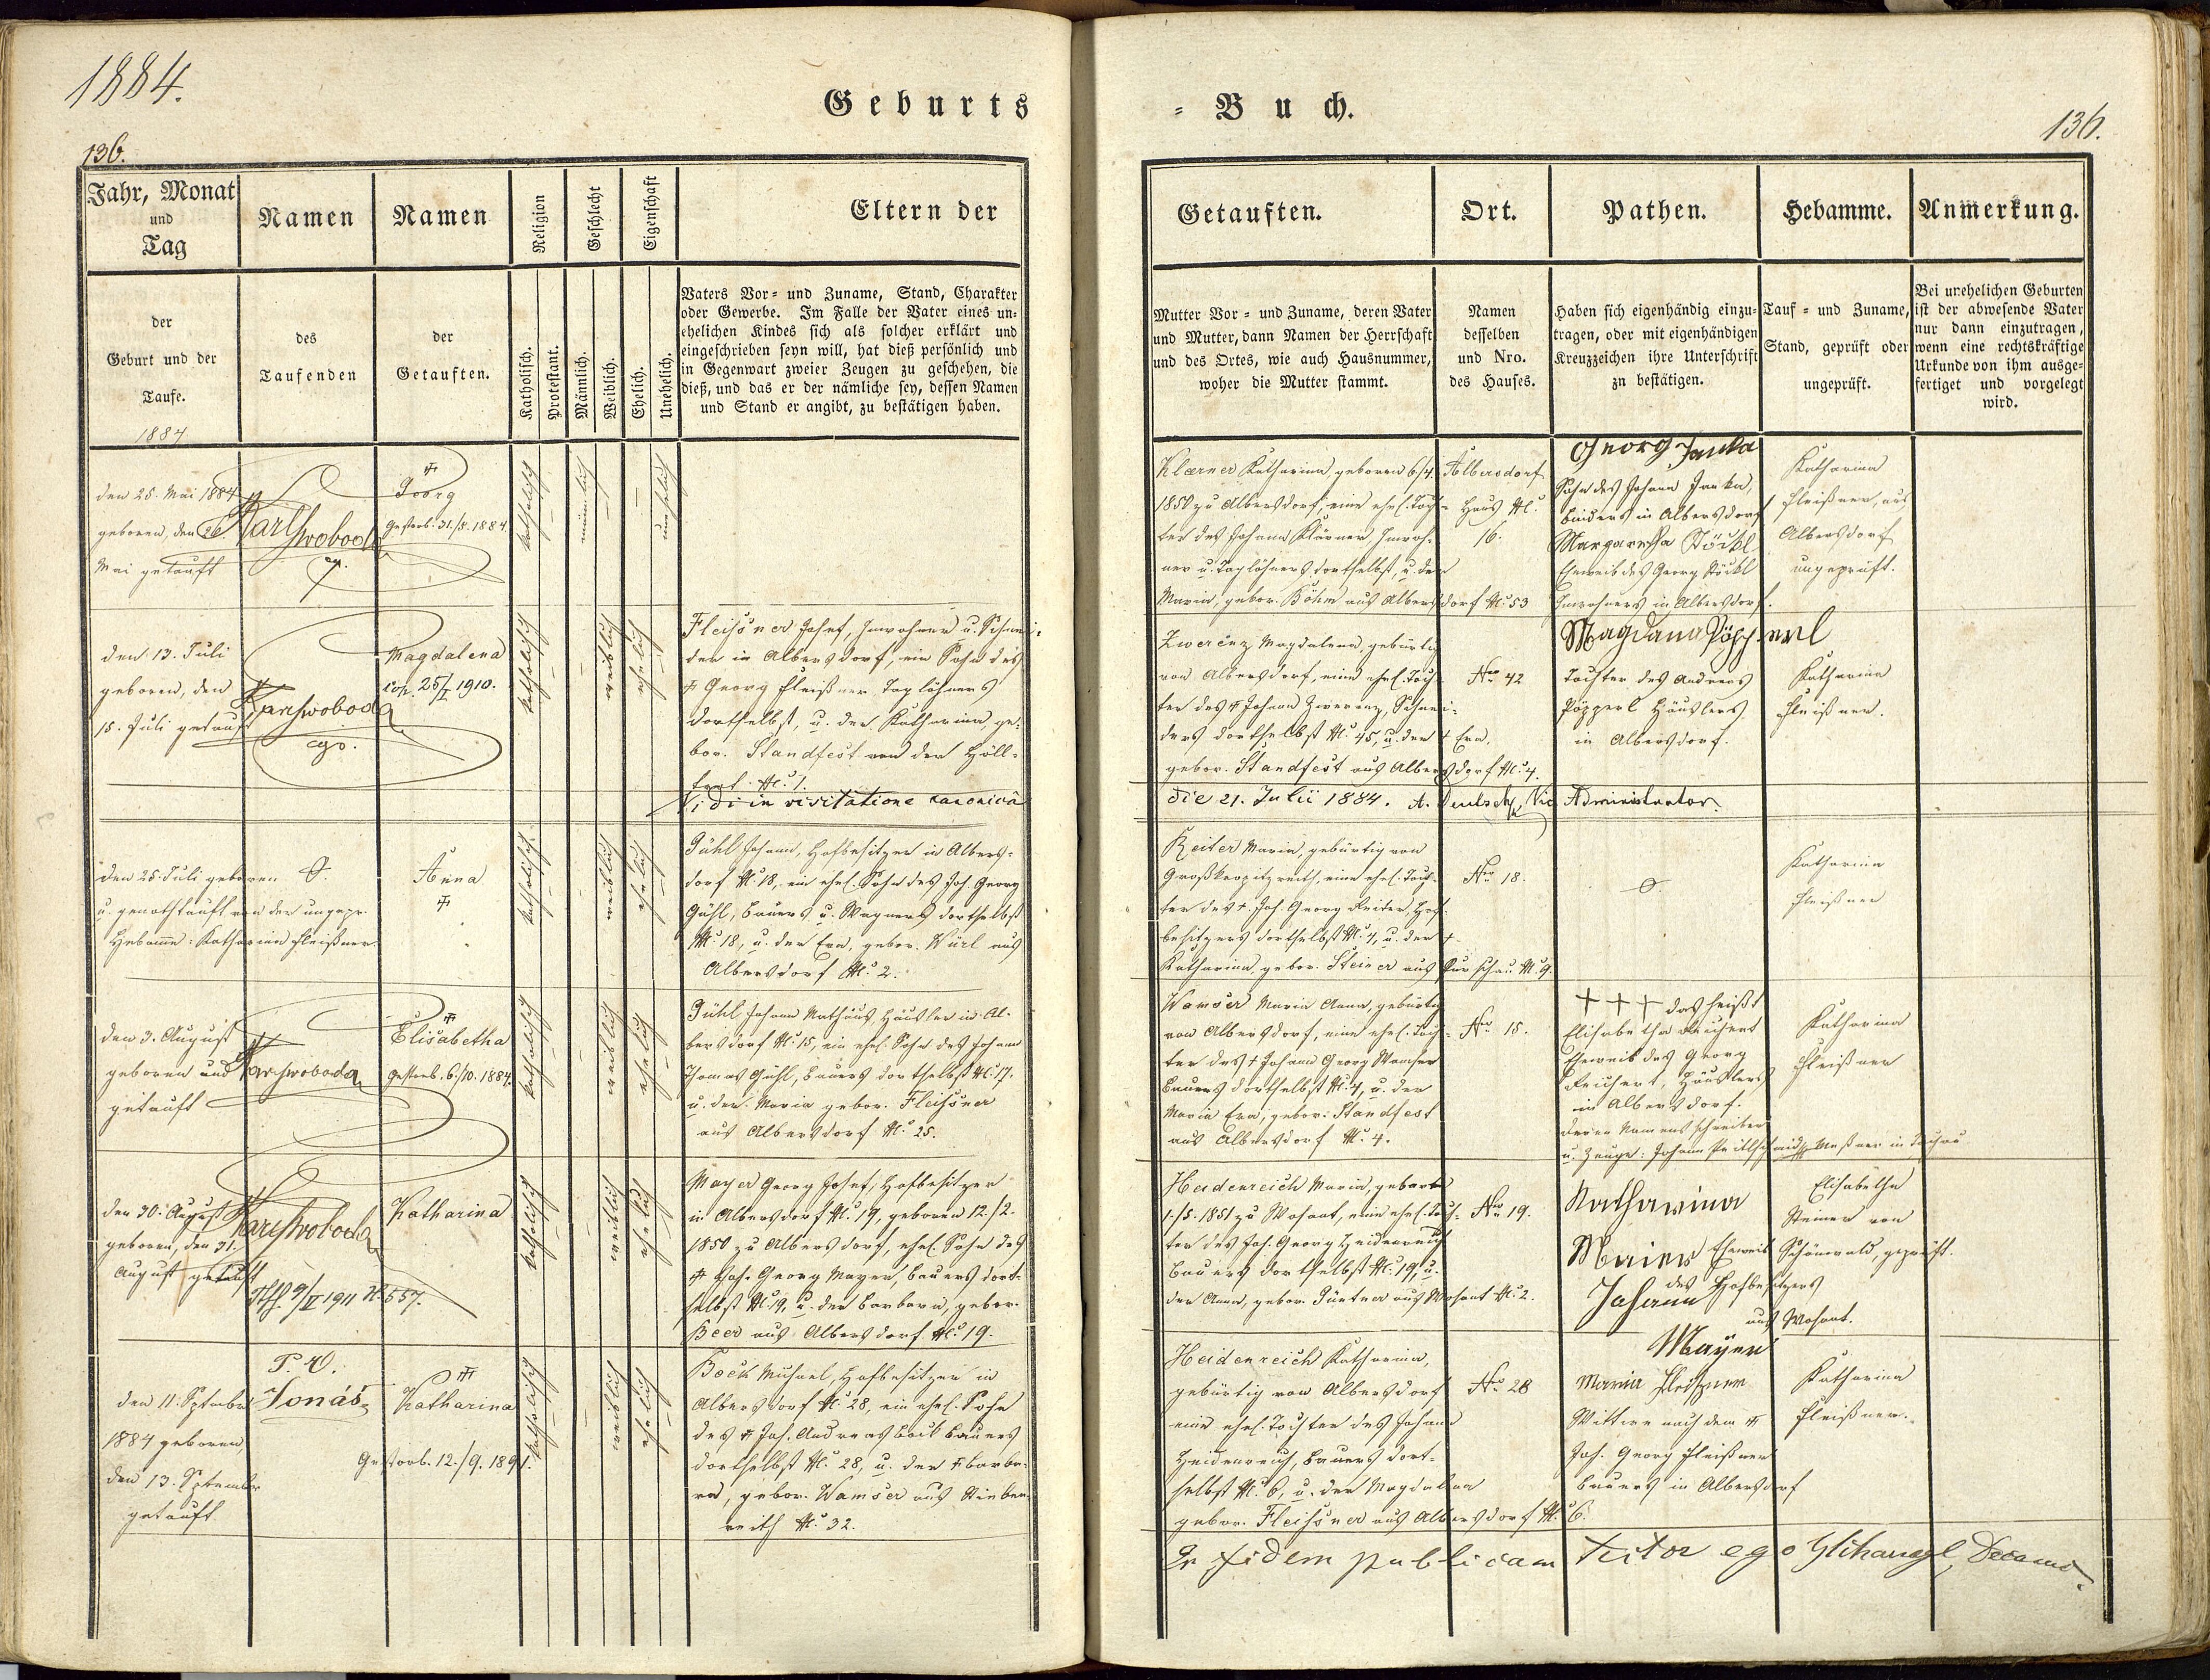 1884.
Geburts
136.
Jahr, Monat
und
Tag
Namen
Namen
Religion
Geschlecht
Eigenschaft
Eltern der
der
Geburt und der
Taufe.
1884
des
Taufenden
der
Getauften.
Katholisch.
Protestant.
Männlich.
Weiblich.
Ehelich.
Unehelich.
Vaters Vor- und Zuname, Stand, Charakter
oder Gewerbe. Im Falle der Vater eines un-
ehelichen Kindes sich als solcher erklärt und
eingeschrieben seyn will, hat dieß persönlich und
in Gegenwart zweier Zeugen zu geschehen, die
dieß, und das er der nämliche sey, dessen Namen
und Stand er angibt, zu bestätigen haben.
den 25. Mai 1884
geboren, den 26
Mai getauft
Karl Swoboda
Georg
Gestorb. 31./8. 1884.
katholisch
männlich
unehelich
den 13. Juli
geboren, den
15. Juli getauft
Karl Swoboda
Magdalena
cop. 25/I 1910.
katholisch
weiblich
ehelich
Fleissner Josef, Inwohner u. Schnei-
der in Albersdorf, ein Sohn des
Georg Fleißner Taglöhners
dortselbst, u. der Katharina, ge-
bor. Standfest von der Höll-
N. 1.
Vidi in visitatione canonica
den 25. Juli geboren
u. genothtauft von der ungepr.
Hebamme: Katharina Fleißner.
Anna
katholisch
weiblich
ehelich
Gühl Johann, Hofbesitzer in Albers-
dorf N. 18, ein ehel. Sohn des Joh. Georg
Gühl, Bauers u. Wagners dortselbst
N. 18, u. der Eva, gebor. Würl aus
Albersdorf N. 2.
den 3. August
geboren und
getauft
Karl Swoboda
Elisabetha
gestorb. 6./10. 1884.
katholisch
weiblich
ehelich
Gühl Johann Mathäus Häusler in Al-
bersdorf N. 15, ein ehel. Sohn des Johann
Thomas Gühl, Bauers dortselbst N. 17.
u. der Maria gebor. Fleissner
aus Albersdorf N. 25.
den 30. August
geboren, den 31.
August getauft
Karl Swoboda
Katharina
9/II 1911 N. 557.
katholisch
weiblich
ehelich
Mayer Georg Josef, Hofbesitzer
in Albersdorf N. 19, geboren 12./2.
1850 zu Albersdorf, ehel. Sohn des
Joh. Georg Mayer, Bauers dort-
selbst N. 19, u. der Barbara, gebor.
Beer aus Albersdorf N. 19.
den 11. September
1884 geboren,
den 13. September
getauft
Jonáš
Katharina
Gestorb. 12./9. 1891.
katholisch
weiblich
ehelich
Bock Michael, Hofbesitzer in
Albersdorf N. 28, ein ehel. Sohn
des Joh. Andreas Bock Bauers
dortselbst N. 28, u. der Barba-
ra, gebor. Wamser aus
reith N. 32.
= Buch.
136.
Getauften.
Ort.
Pathen.
Hebamme.
Anmerkung.
Mutter Vor- und Zuname, deren Vater
und Mutter, dann Namen der Herrschaft
und des Ortes, wie auch Hausnummer,
woher die Mutter stammt.
Namen
desselben
und Nro.
des Hauses.
Haben sich eigenhändig einzu-
tragen, oder mit eigenhändigen
Kreuzzeichen ihre Unterschrift
zu bestätigen.
Tauf- und Zuname,
Stand, geprüft oder
ungeprüft.
Bei unehelichen Geburten
ist der abwesende Vater
nur dann einzutragen,
wenn eine rechtskräftige
Urkunde von ihm ausge-
fertiget und vorgelegt
wird.
Klærner Katharina, geboren 6/4.
1850 zu Albersdorf, eine ehel. Toch-
ter des Johann Klärner, Inwoh-
ner u. Taglöhners dortselbst, u. der
Maria, gebor. Böhm aus Albersdorf N. 53
Albersdorf
Haus N.
16.
Georg Janka
Sohn des Johann Janka,
Binders in Albersdorf
Margaretha Stöckl
Eheweib des Georg Stöckl
Inwohners in Albersdorf.
Katharina
Fleißner, aus
Albersdorf
ungeprüft.
Zwerenz Magdalena, gebürtig
von Albersdorf, eine ehel. Toch-
ter des Johann Zwerenz, Schnei-
ders dortselbst N. 45, u. der + Eva,
gebor. Standfest aus Albersdorf N. 4.
Nro 42
Magdana Pöpperl
Tochter des Andreas
Pöpperl Häuslers
in Albersdorf.
Katharina
Fleißner.
die 21. Julii 1884. A. Deutsch, Vic Administrator.
Reiter Maria, gebürtig von
Großkropitzreith, eine ehel. Toch-
ter des + Joh. Georg Reiter, Hof-
besitzers dortselbst N. 4, u. der +
Katharina gebor. Steiner aus Purschau N. 9.
Nro 18.
Katharina
Fleißner
Wamser Maria Anna, gebürtig
von Albersdorf, eine ehel. Toch-
ter des + Johann Georg Wamser
Bauers dortselbst N. 4, u. der
Maria Eva, gebor. Standfest
aus Albersdorf N. 4.
Nro 15.
+++ das heißt
Elisabetha
Eheweib des Georg
Häuslers
in Albersdorf.
deren Namensschreiber
u. Zeuge: Johann Meßner in Tachau
Katharina
Fleißner
Heidenreich Maria, geboren
1./5. 1851 zu Wosant, eine ehel. Toch-
ter des Joh. Georg Heidenreich
Bauers dortselbst N. 19, u.
der Anna, gebor. Güntner aus Wosant N. 2.
Nro 19.
Katharina
Maier Eheweib
des Hofbesitzers
Johann
aus Wosant.
Mayer
Elisabetha
Steiner von
Schönwald, geprüft.
Heidenreich Katharina,
gebürtig von Albersdorf
eine ehel. Tochter des Johann
Heidenreich, Bauers dort-
selbst N. 6, u. der Magdalena
gebor. Fleissner aus Albersdorf N. 6.
Nro 28
Maria Fleißner
Wittwe nach dem
Joh. Georg Fleißner
Bauers in Albersdorf
Katharina
Fleißner.
fidem publicam testor ego